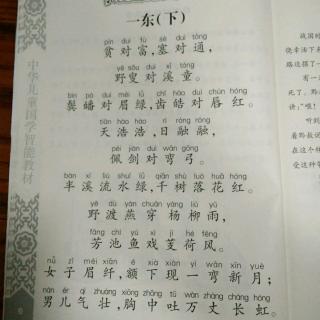 一东(下)
pín duì fù sè duì tōng
贫对富,塞对通,
yě sǒu duì xī tóng
野叟对溪童。
bìn pó duì méi lǜ chǐ hào duì chún hóng
鬓皤对眉绿,齿皓对唇红。
tiān hào hào rì róng róng
天浩浩,日融融,
pèi jiàn duì wān gōng
佩剑对弯弓。
bàn xī liú shuǐ lǜ qiān shù luò huā hóng
半溪流水绿,千树落花红。
yě dù yàn chuān yáng liǔ yǔ
野渡燕穿杨柳雨,
fāng chí yú xì jì hé fēng
芳池鱼戏芰荷风。
nǚ zǐ méi xiān é xià xiàn yì wān xīn yuè
女子眉纤,额下现一弯新月;
nán ér qì zhuàng xiōng zhōng tǔ wàn zhàng cháng hóng
男儿气壮,胸中吐万丈长虹。
中华儿童国学智能教材
战国时
侥幸活下来
有一
听到
受这种